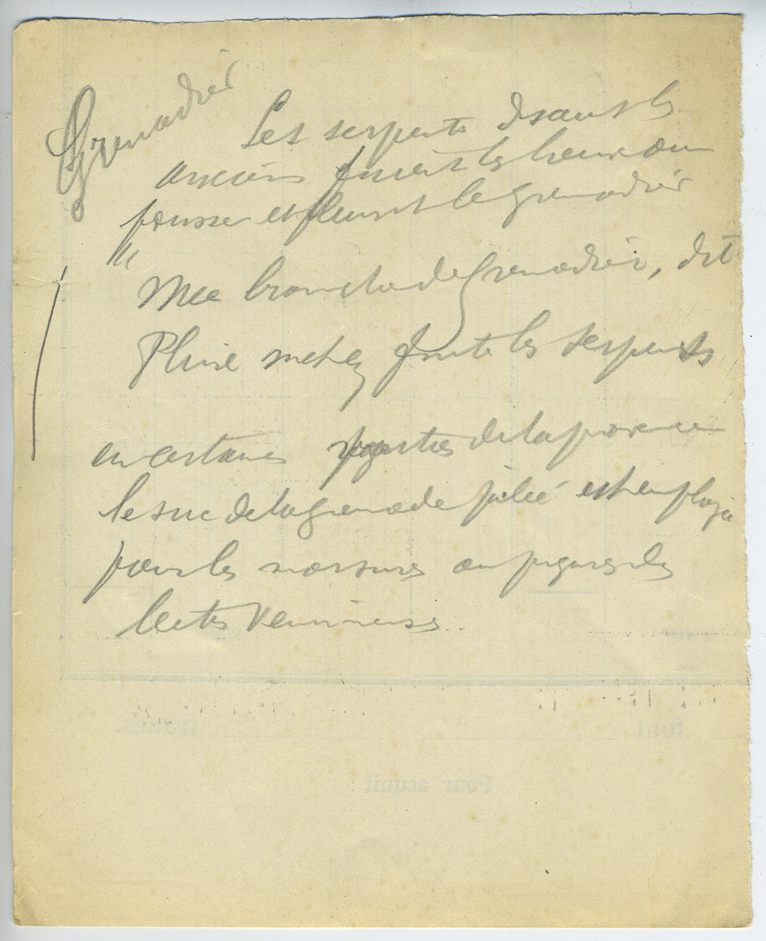 Grenadier
Les serpents disaient les
anciens fuient les lieux où
pousse et fleurit le grenadier
"
Une branche de Grenadier, dit
Pline met en fuite les serpents
en certaines parties de la province
le suc de la grenade pilée est employé
pour les morsures ou piqures des
bêtes venimeuses.
font
francs.
Pour acquit :